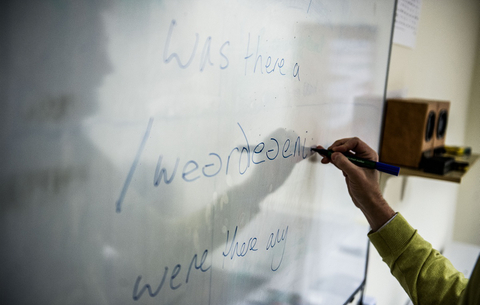 was there a
/weərðeəeni
were there any